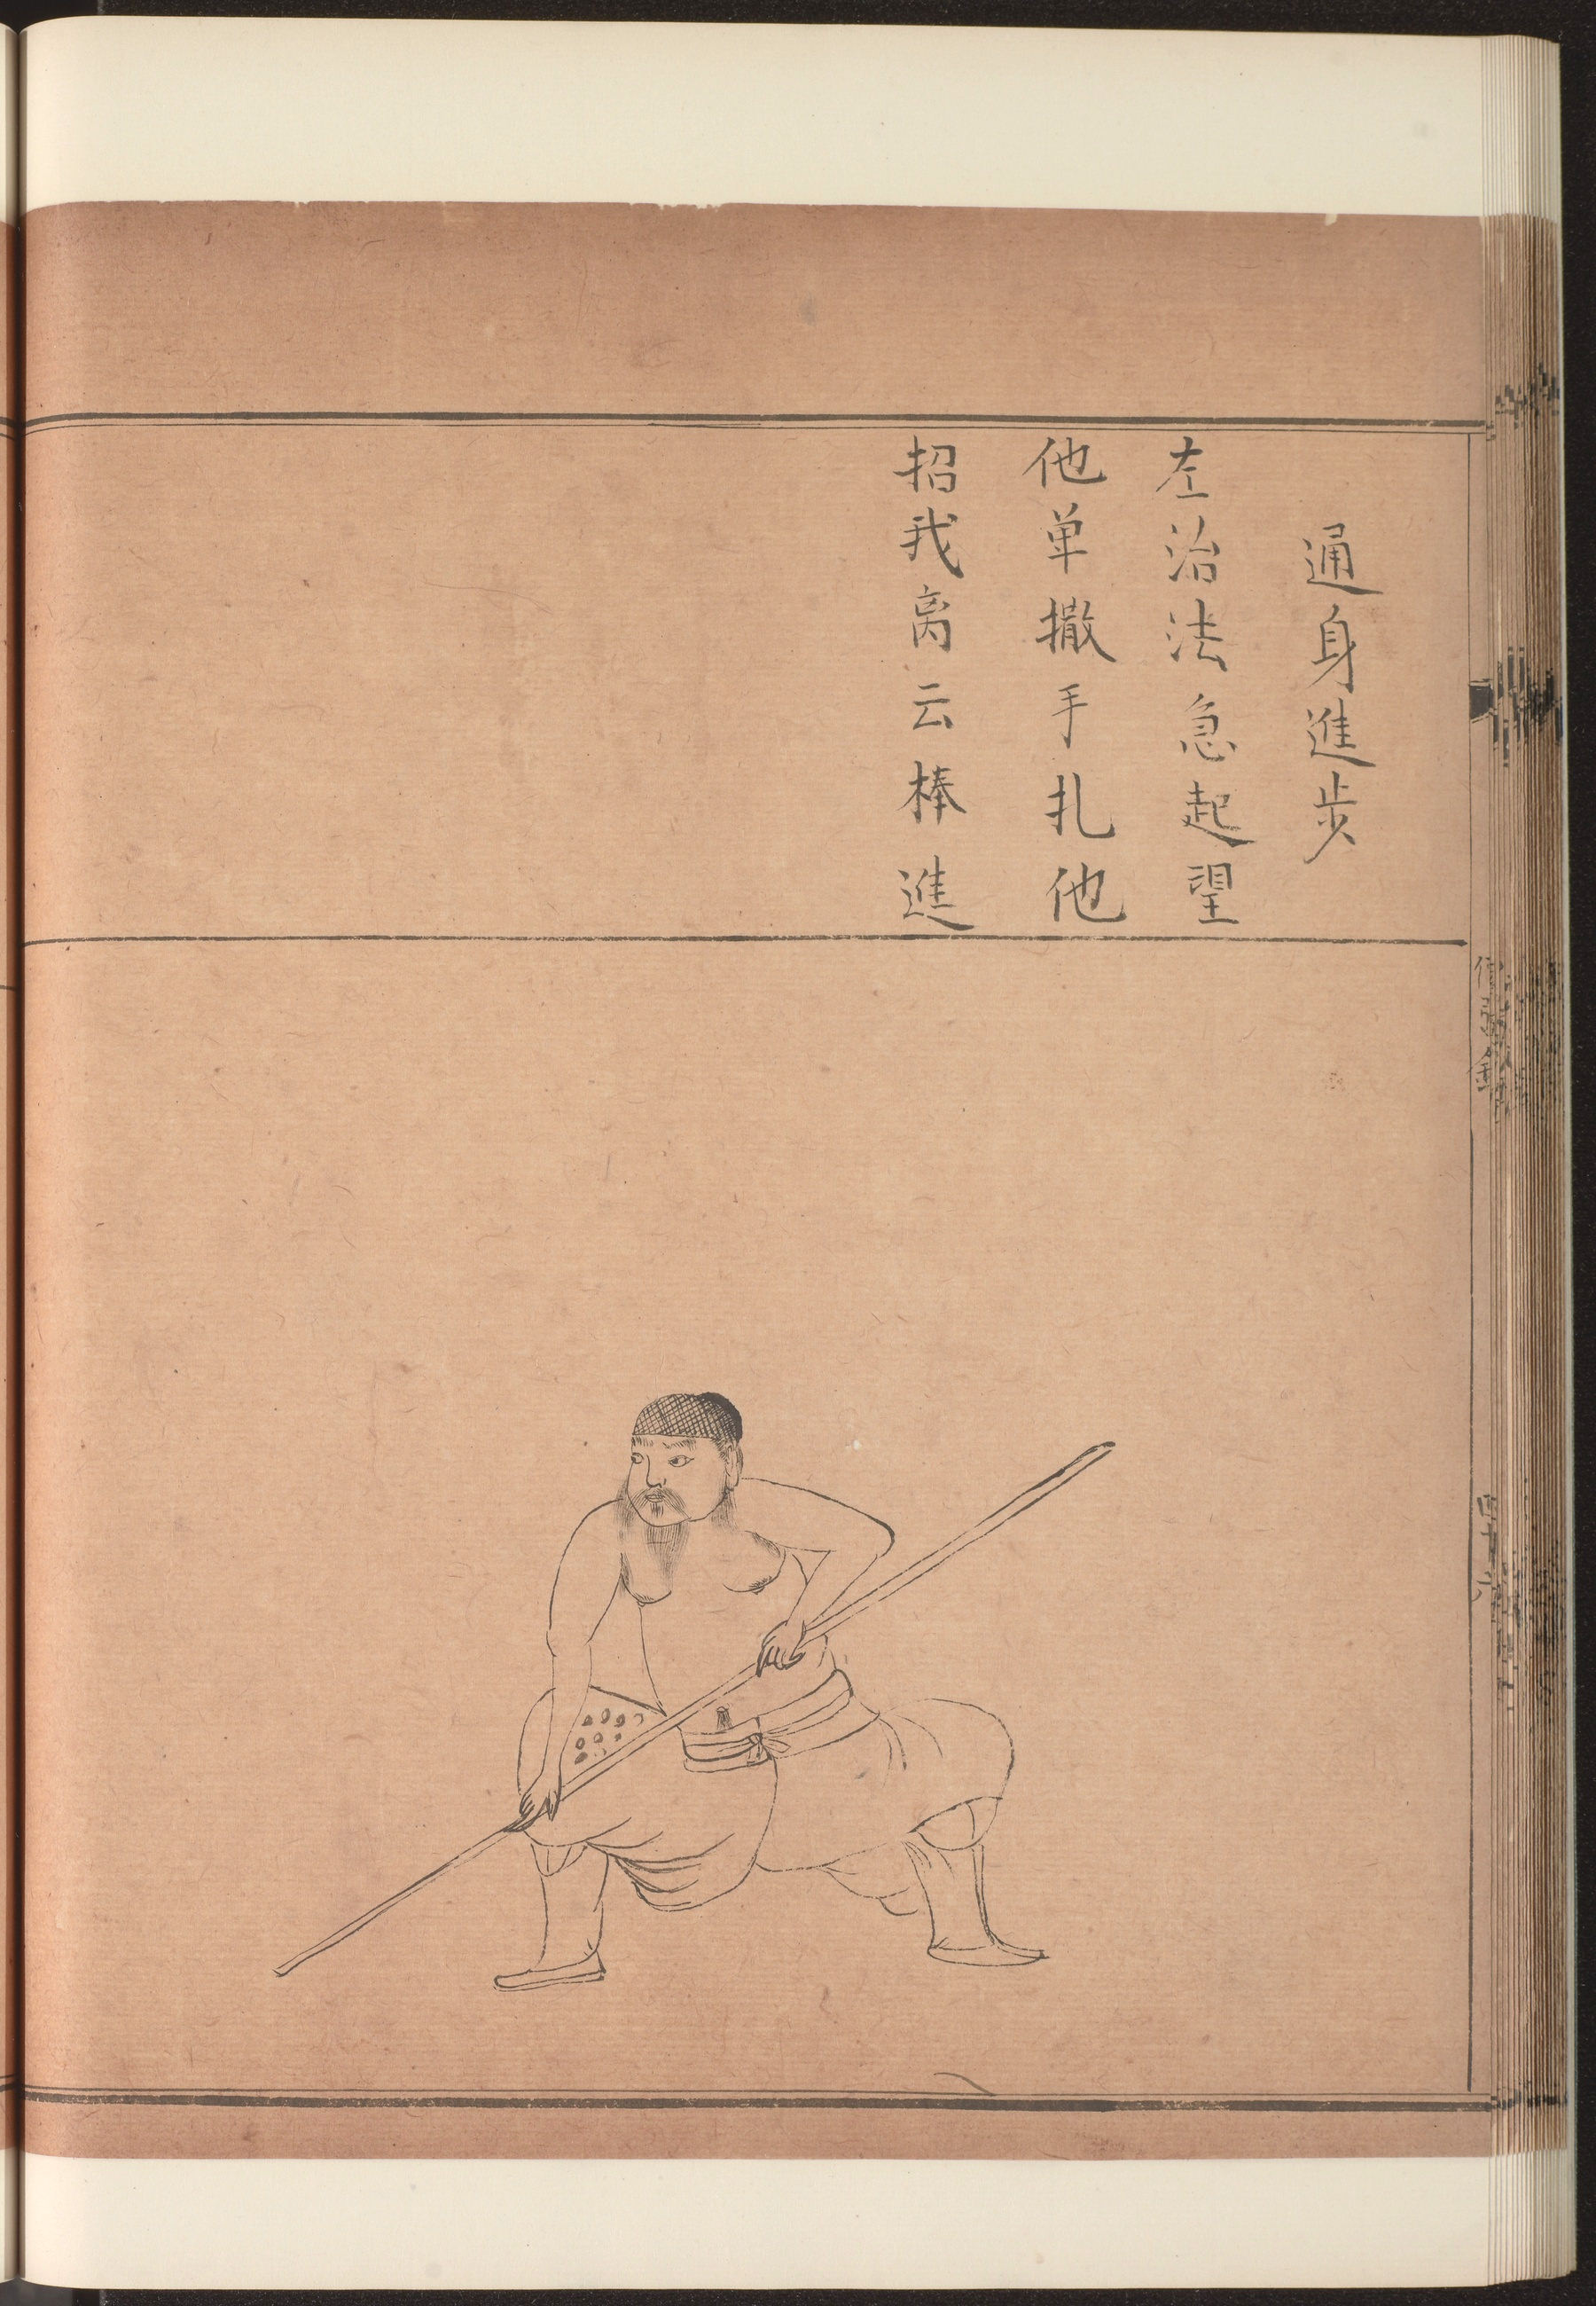 通身進步
左治法急起望
他单撒手扎他
招我离云棒進
四十六